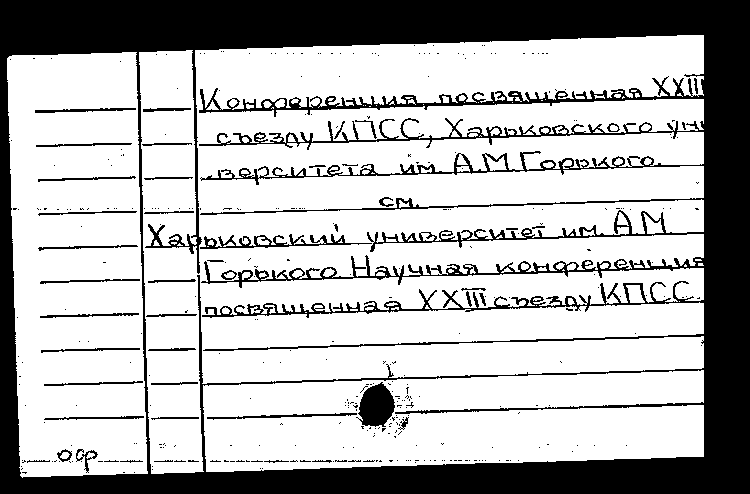 Конференция, посвященная XXIII
съезду КПСС, Харьковского уни
верситета им. А.М.Горького.
см.
Харьковский университет им. А М
Горького Научная конференция
посвященная XXIII съезду КПСС.